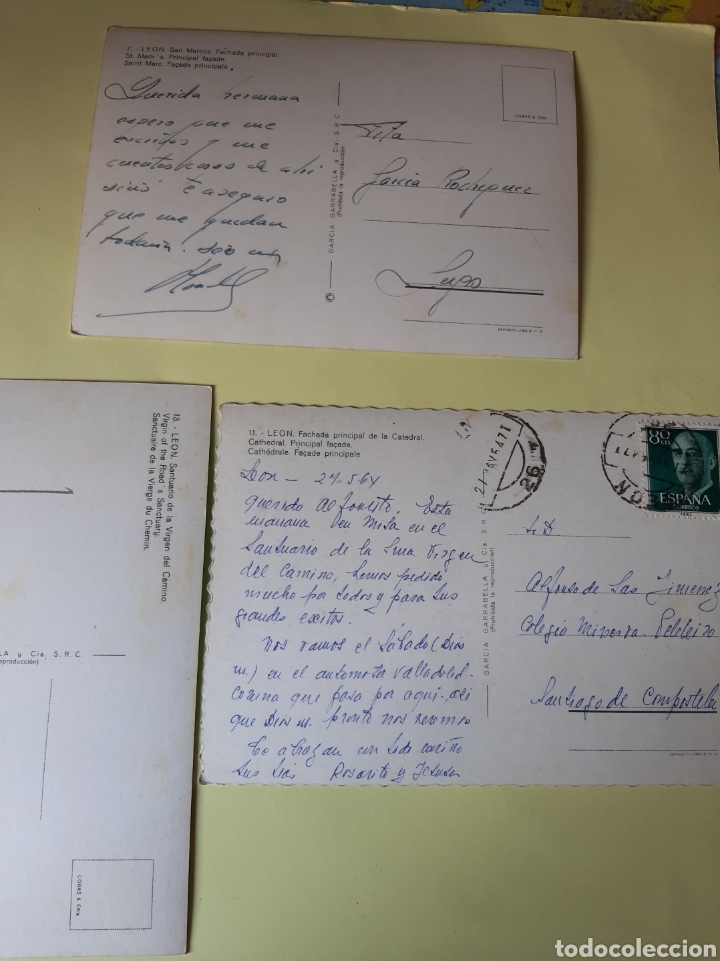 7. - LEON. San Marcos. Fachada principal.
St. Mark's. Principal façade.
Saint Marc. Façade principale.
Querida hermana
espero que me
escribas y me
cuentes cosas de ahi
sinó te aseguro
que me quedan
todavia.
Tita
Garcia Rodriguez
Lugo
© GARCIA GARRABELLA y Cía. S. R. C.
(Prohibida la reproducción)
COBAS & Cnia
13. - LEON. Santuario de la Virgen del Camino.
Virgin of the Road's Sanctuary.
Sanctuaire de la Vierge du Chémin.
LA y Cía. S.R.C.
reproducción)
COBAS & Cnia
11. - LEON. Fachada principal de la Catedral.
Cathedral. Principal façade.
Cathédrale. Façade principale
Leon - 27.5.64
Querido Alfonsito. Esta
mañana en Misa en el
Santuario de la Sma Virgen
del Camino, hemos pedido
mucho por todos y para tus
grandes exitos.
Nos vamos el Sábado (Dios
m.) en el automotor Valladolid-
que pasa por aqui. asi
que Dios m. pronto nos veremos
Te abrazan con todo cariño
tus tias Rosarito y
GARCIA GARRABELLA y Cía. S.R.C.
(Prohibida la reproducción)
80 CTS
ESPAÑA
CORREOS
26
S.D.
Alfonso de las Jimenez
Colegio Minerva
Santiago de Compostela
todocoleccion